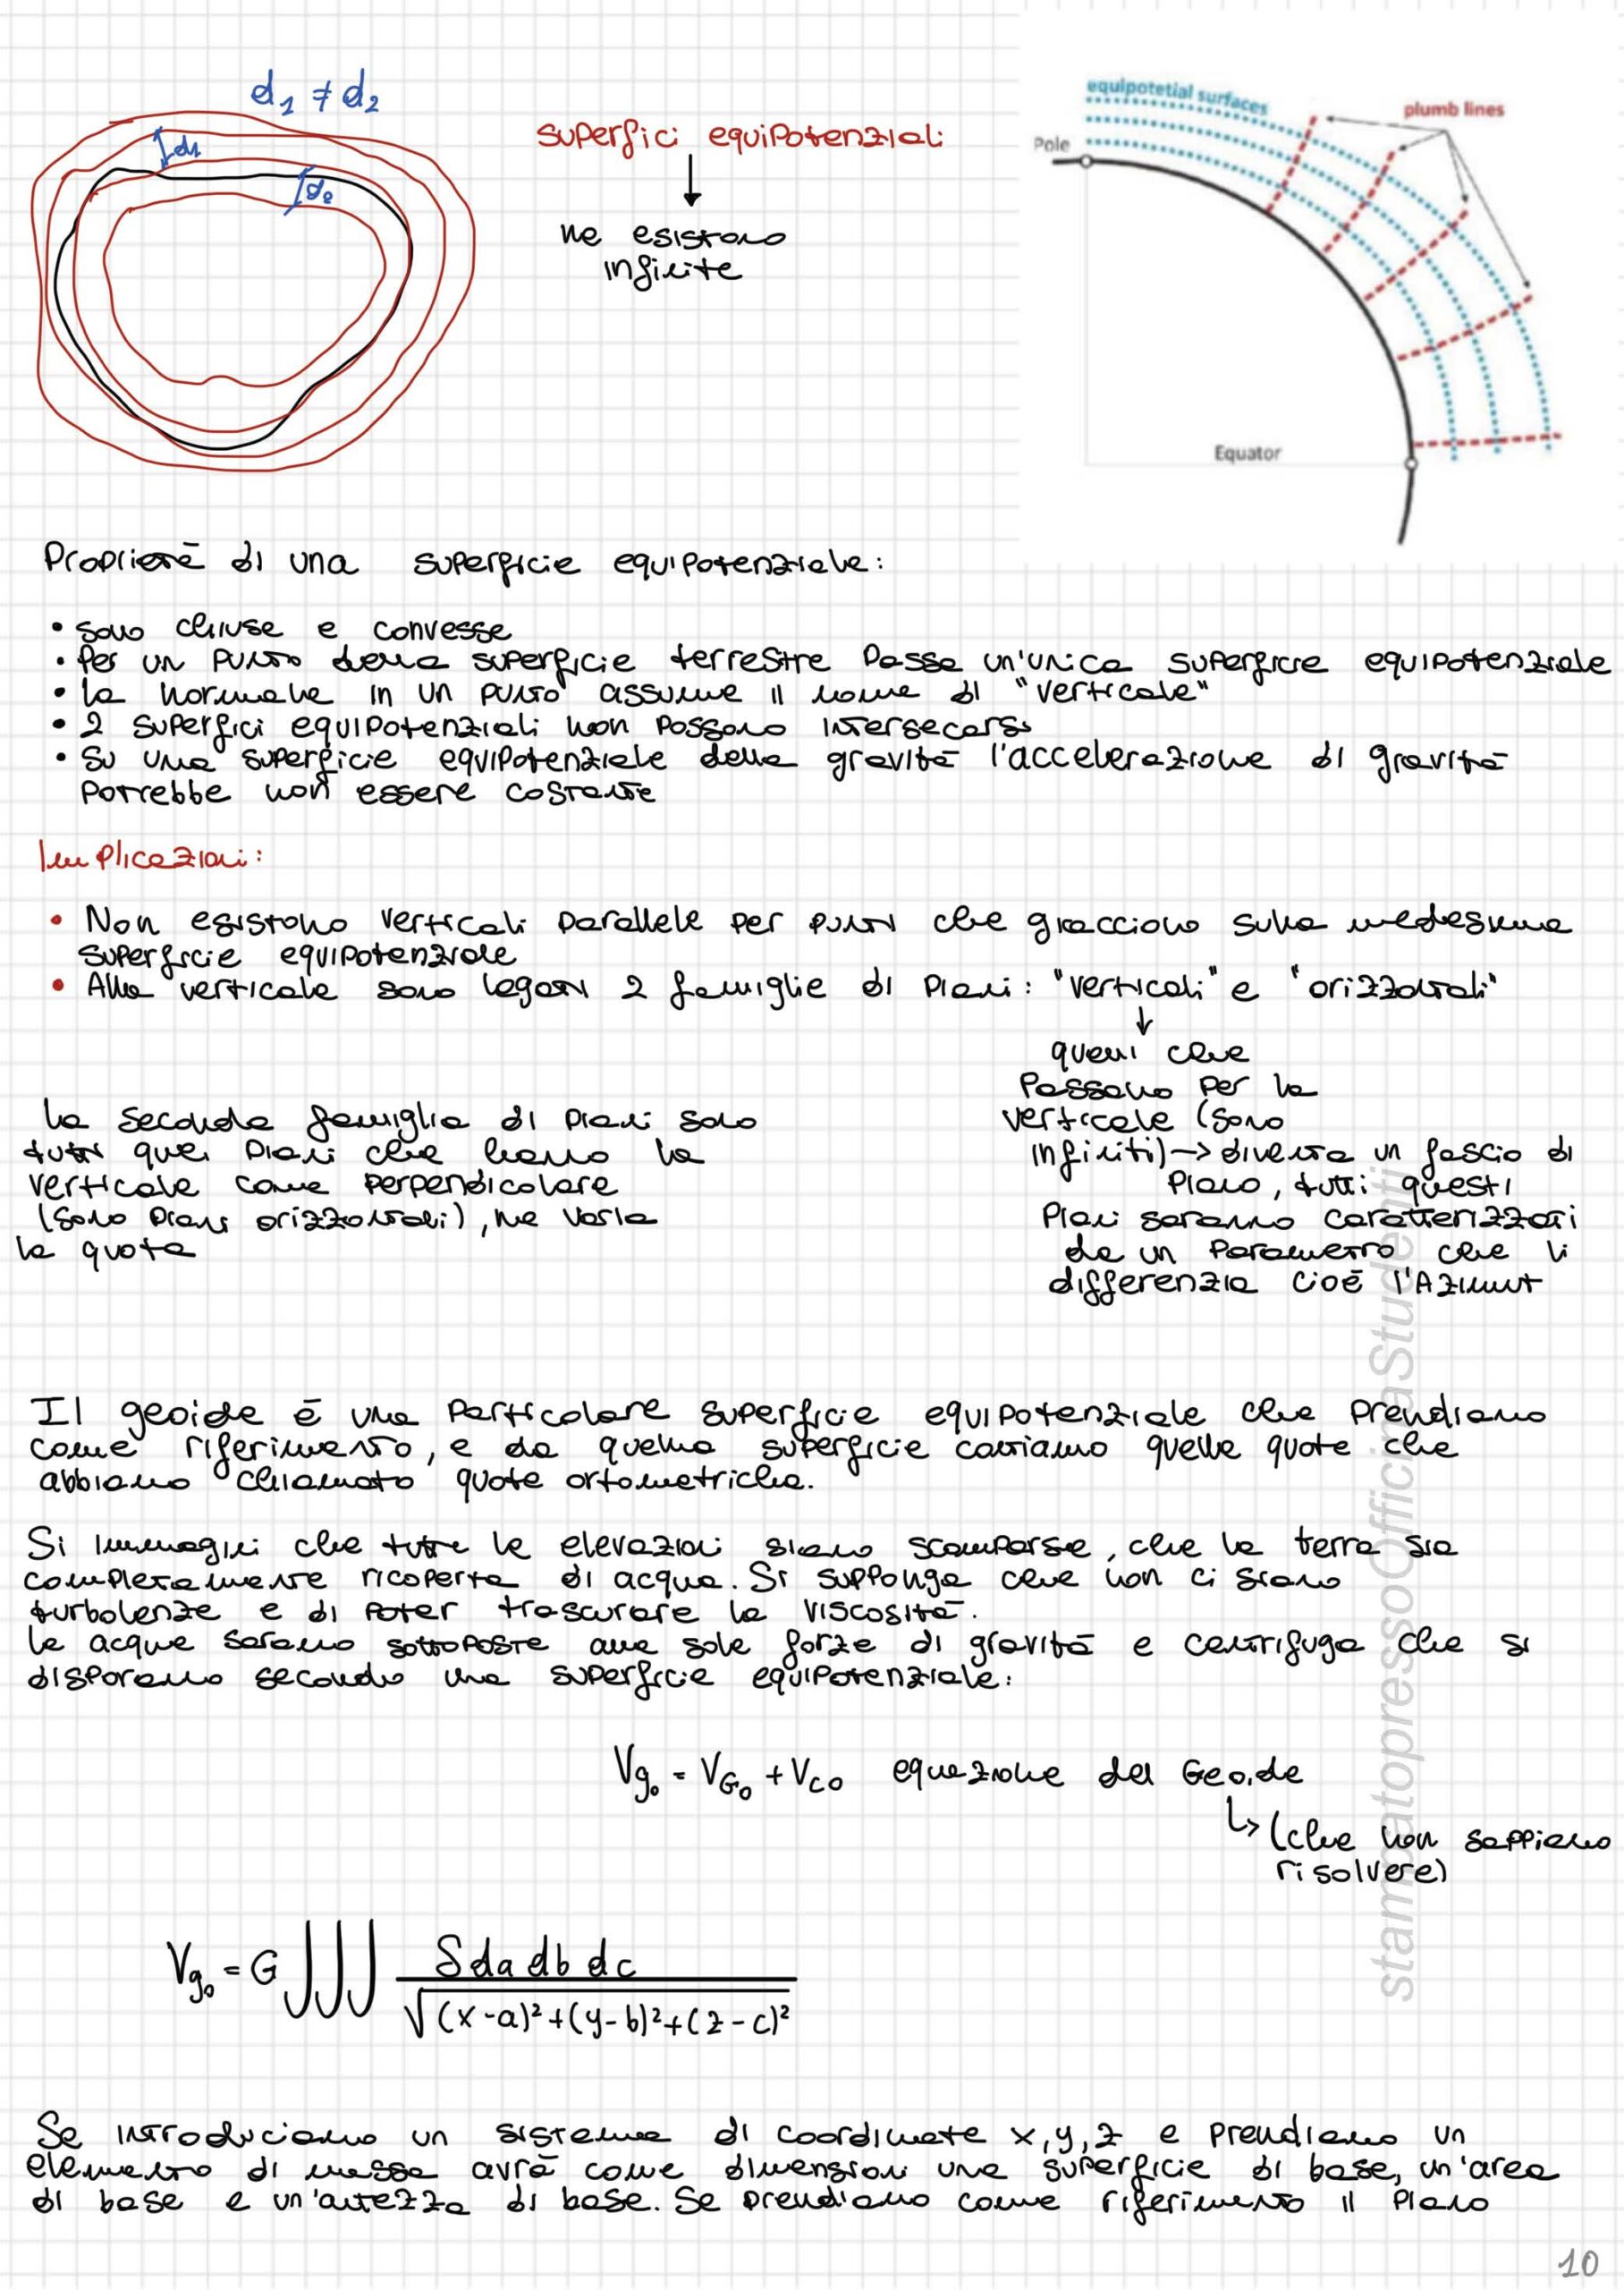 d₁ ≠ d₂
d₁
d₂
superfici equipotenziali
↓
ne esistono
infinite
equipotetial surfaces
plumb lines
Pole
Equator
Proprietà di una superficie equipotenziale:
• sono chiuse e convesse
• Per un punto della superficie terrestre passa un'unica superficie equipotenziale
• la normale in un punto assume il nome di "verticale"
• 2 superfici equipotenziali non possono intersecarsi
• Su una superficie equipotenziale della gravità l'accelerazione di gravità
potrebbe non essere costante
Implicazioni:
• Non esistono verticali parallele per punti che giacciono sulla medesima
superficie equipotenziale
• Alla verticale sono legati 2 famiglie di piani: "verticali" e "orizzontali"
↓
quelli che
passano per la
verticale (sono
infiniti) → diventa un fascio di
piano, tutti questi
piani saranno caratterizzati
da un parametro che li
differenzia cioè l'Azimut
La seconda famiglia di piani sono
tutti quei piani che hanno la
verticale come perpendicolare
(sono piani orizzontali), ne varia
la quota
Il geoide è una particolare superficie equipotenziale che prendiamo
come riferimento, e da quella superficie contiamo quelle quote che
abbiamo chiamato quote ortometriche.
Si immagini che tutte le elevazioni siano scomparse, che la terra sia
completamente ricoperta di acqua. Si supponga che non ci siano
turbolenze e di poter trascurare la viscosità.
le acque saranno sottoposte alle sole forze di gravità e centrifuga che si
disporanno secondo una superficie equipotenziale:
Vg₀ = VG₀ + Vc₀ equazione del Geoide
↳ (che non sappiamo
risolvere)
Vg₀ = G ∭ δ da db dc / √((x-a)²+(y-b)²+(z-c)²)
Se introduciamo un sistema di coordinate x,y,z e prendiamo un
elemento di massa avrà come dimensioni una superficie di base, un'area
di base e un'altezza di base. Se prendiamo come riferimento il piano
10
stampatopressoOfficinaStudenti